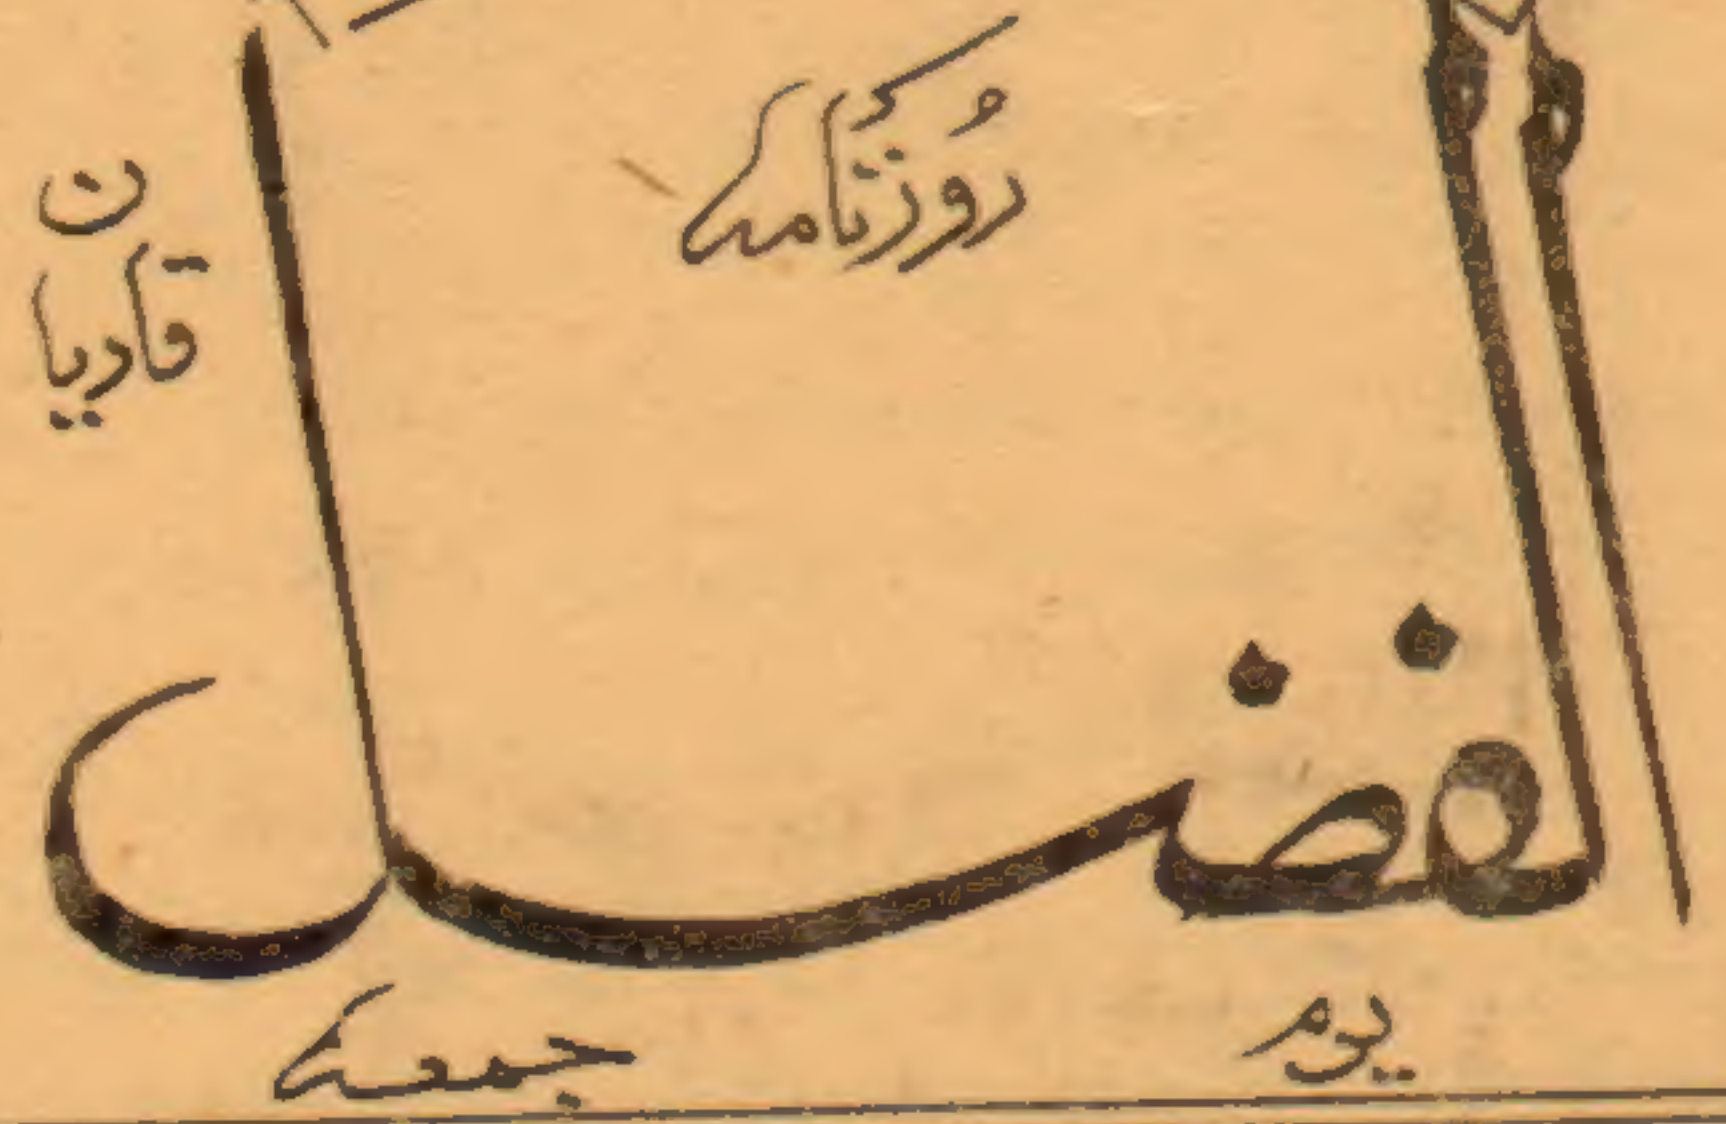 روزنامہ
الفضل
قادیان
یوم جمعہ